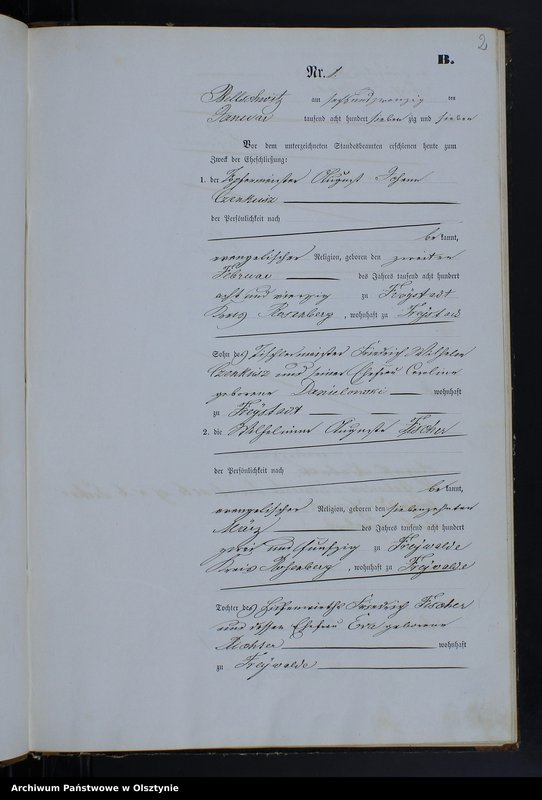 2
B.
Nr. 1.
Bellschwitz am sechsundzwanzig ten
Januar tausend acht hundert sieben zig und sieben
Vor dem unterzeichneten Standesbeamten erschienen heute zum
Zweck der Eheschließung:
1. der Töpfermeister August Johann
Czenkusz
der Persönlichkeit nach
be kannt,
evangelischer Religion, geboren den zweiten
Februar des Jahres tausend acht hundert
acht und vierzig zu Freystadt
Kreis Rosenberg, wohnhaft zu Freystadt
Sohn des Tischlermeister Friedrich Wilhelm
Czenkusz und seiner Ehefrau Caroline
geborene Danielowski wohnhaft
zu Freystadt
2. die Wilhelmine Auguste Fischer
der Persönlichkeit nach
be kannt,
evangelischer Religion, geboren den siebenzehnten
März des Jahres tausend acht hundert
zwei und fünfzig zu Freiwalde
Kreis Rosenberg, wohnhaft zu Freiwalde
Tochter des Hufenwirths Friedrich Fischer
und dessen Ehefrau Eva geborene
wohnhaft
zu Freiwalde
Archiwum Państwowe w Olsztynie